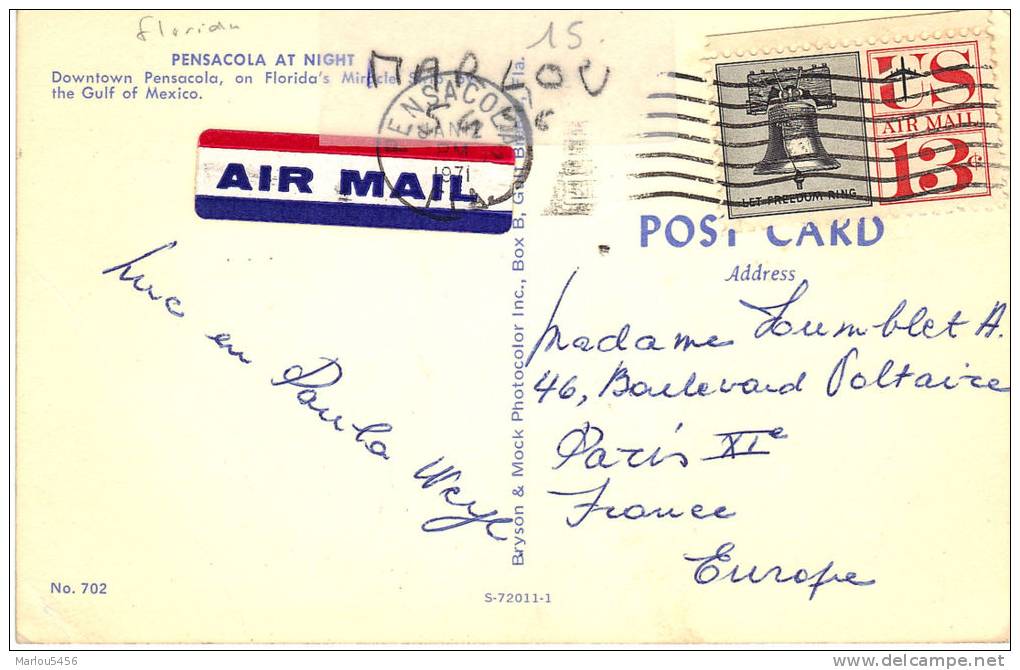 Florida
15.
MARLOU
PENSACOLA AT NIGHT
Downtown Pensacola, on Florida's Miracle
the Gulf of Mexico.
PENSACOLA
JAN
1971
AIR MAIL
US
AIR MAIL
13¢
LET FREEDOM RING
POST CARD
Address
Luc en
Paula Weyl
Madame Humblet A.
46, Boulevard Voltaire
Paris XIe
France
Europe
Bryson & Mock Photocolor Inc., Box B, Gulf Fla.
No. 702
S-72011-1
Marlou5456
http://www.delcampe.net